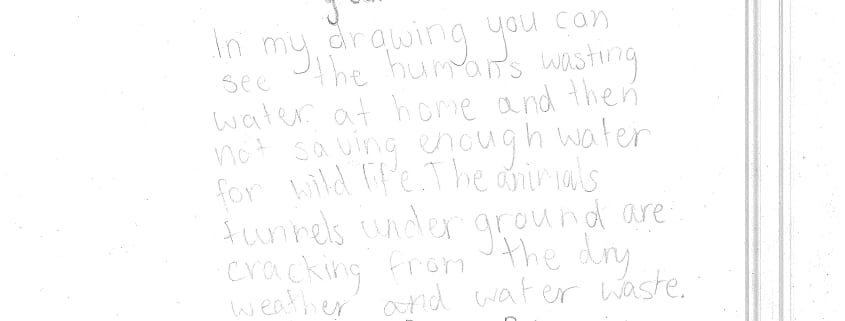 In my drawing you can
see the humans wasting
water at home and then
not saving enough water
for wild life. The animals
tunnels under ground are
cracking from the dry
weather and water waste.